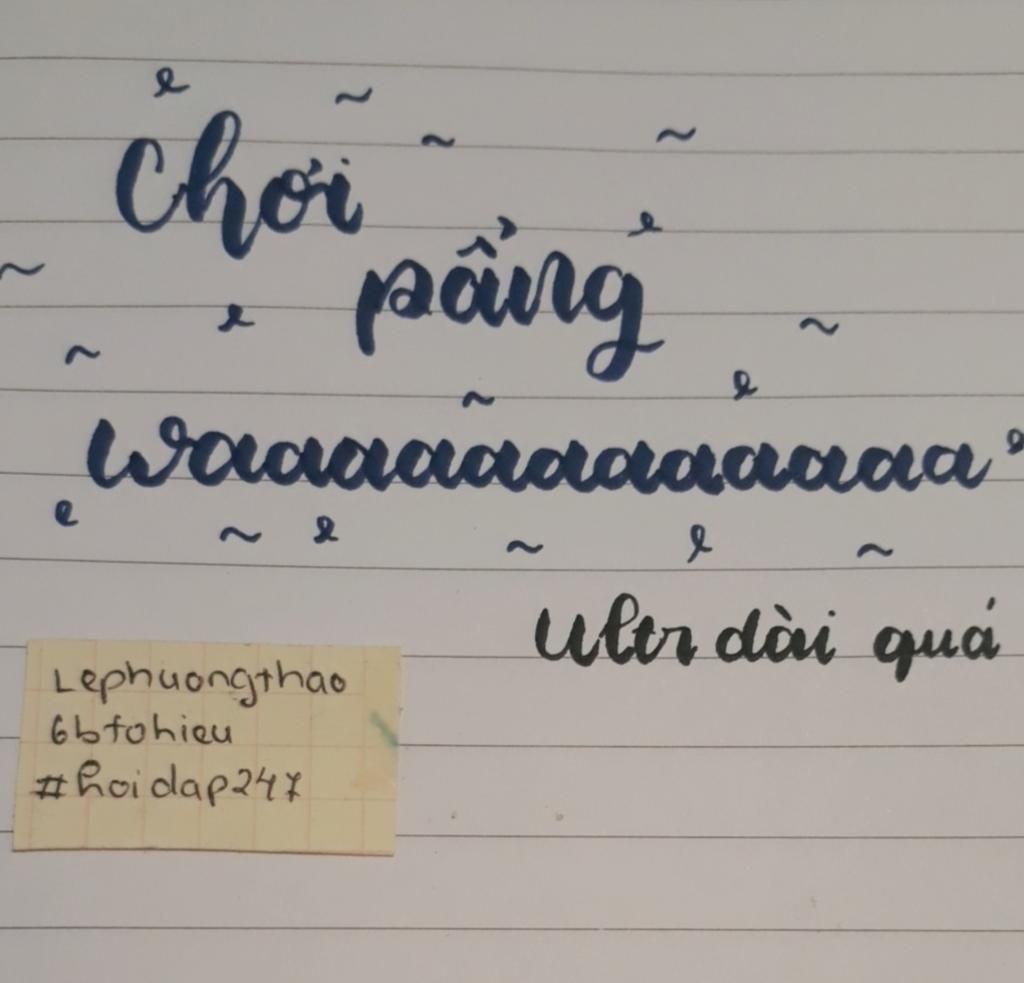 Chơi
pẩng
waaaaaaaaaaaaa
Ultr dài quá
Lephuongthao
6btohieu
#hoidap247